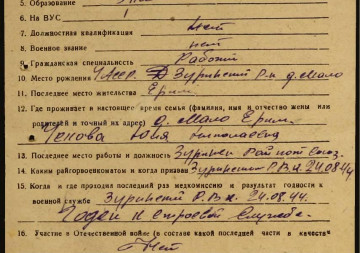 5. Образование
6. На ВУС 1
7. Должностная квалификация Нет
8. Военное звание нет
9. Гражданская специальность Рабочий
10. Место рождения УАССР Зуринский р-н д. Мало
11. Последнее место жительства Ерим.
12. Где проживает и настоящее время семья (фамилия, имя и отчество жены или
родителей и точный их адрес) д. Мало Ерим.
Чекова Юлия Николаевна
13. Последнее место работы и должность Зуринск Райпотсоюз.
14. Каким райгорвоенкоматом и когда призван Зуринским Р.В.К. 24.08.44
15. Когда и где проходил последний раз медкомиссию и результат годности к
военной службе Зуринский Р.В.К. 24.08.44.
Годен к строевой службе.
16. Участие в Отечественной войне (в составе какой последней части и в качестве
Нет